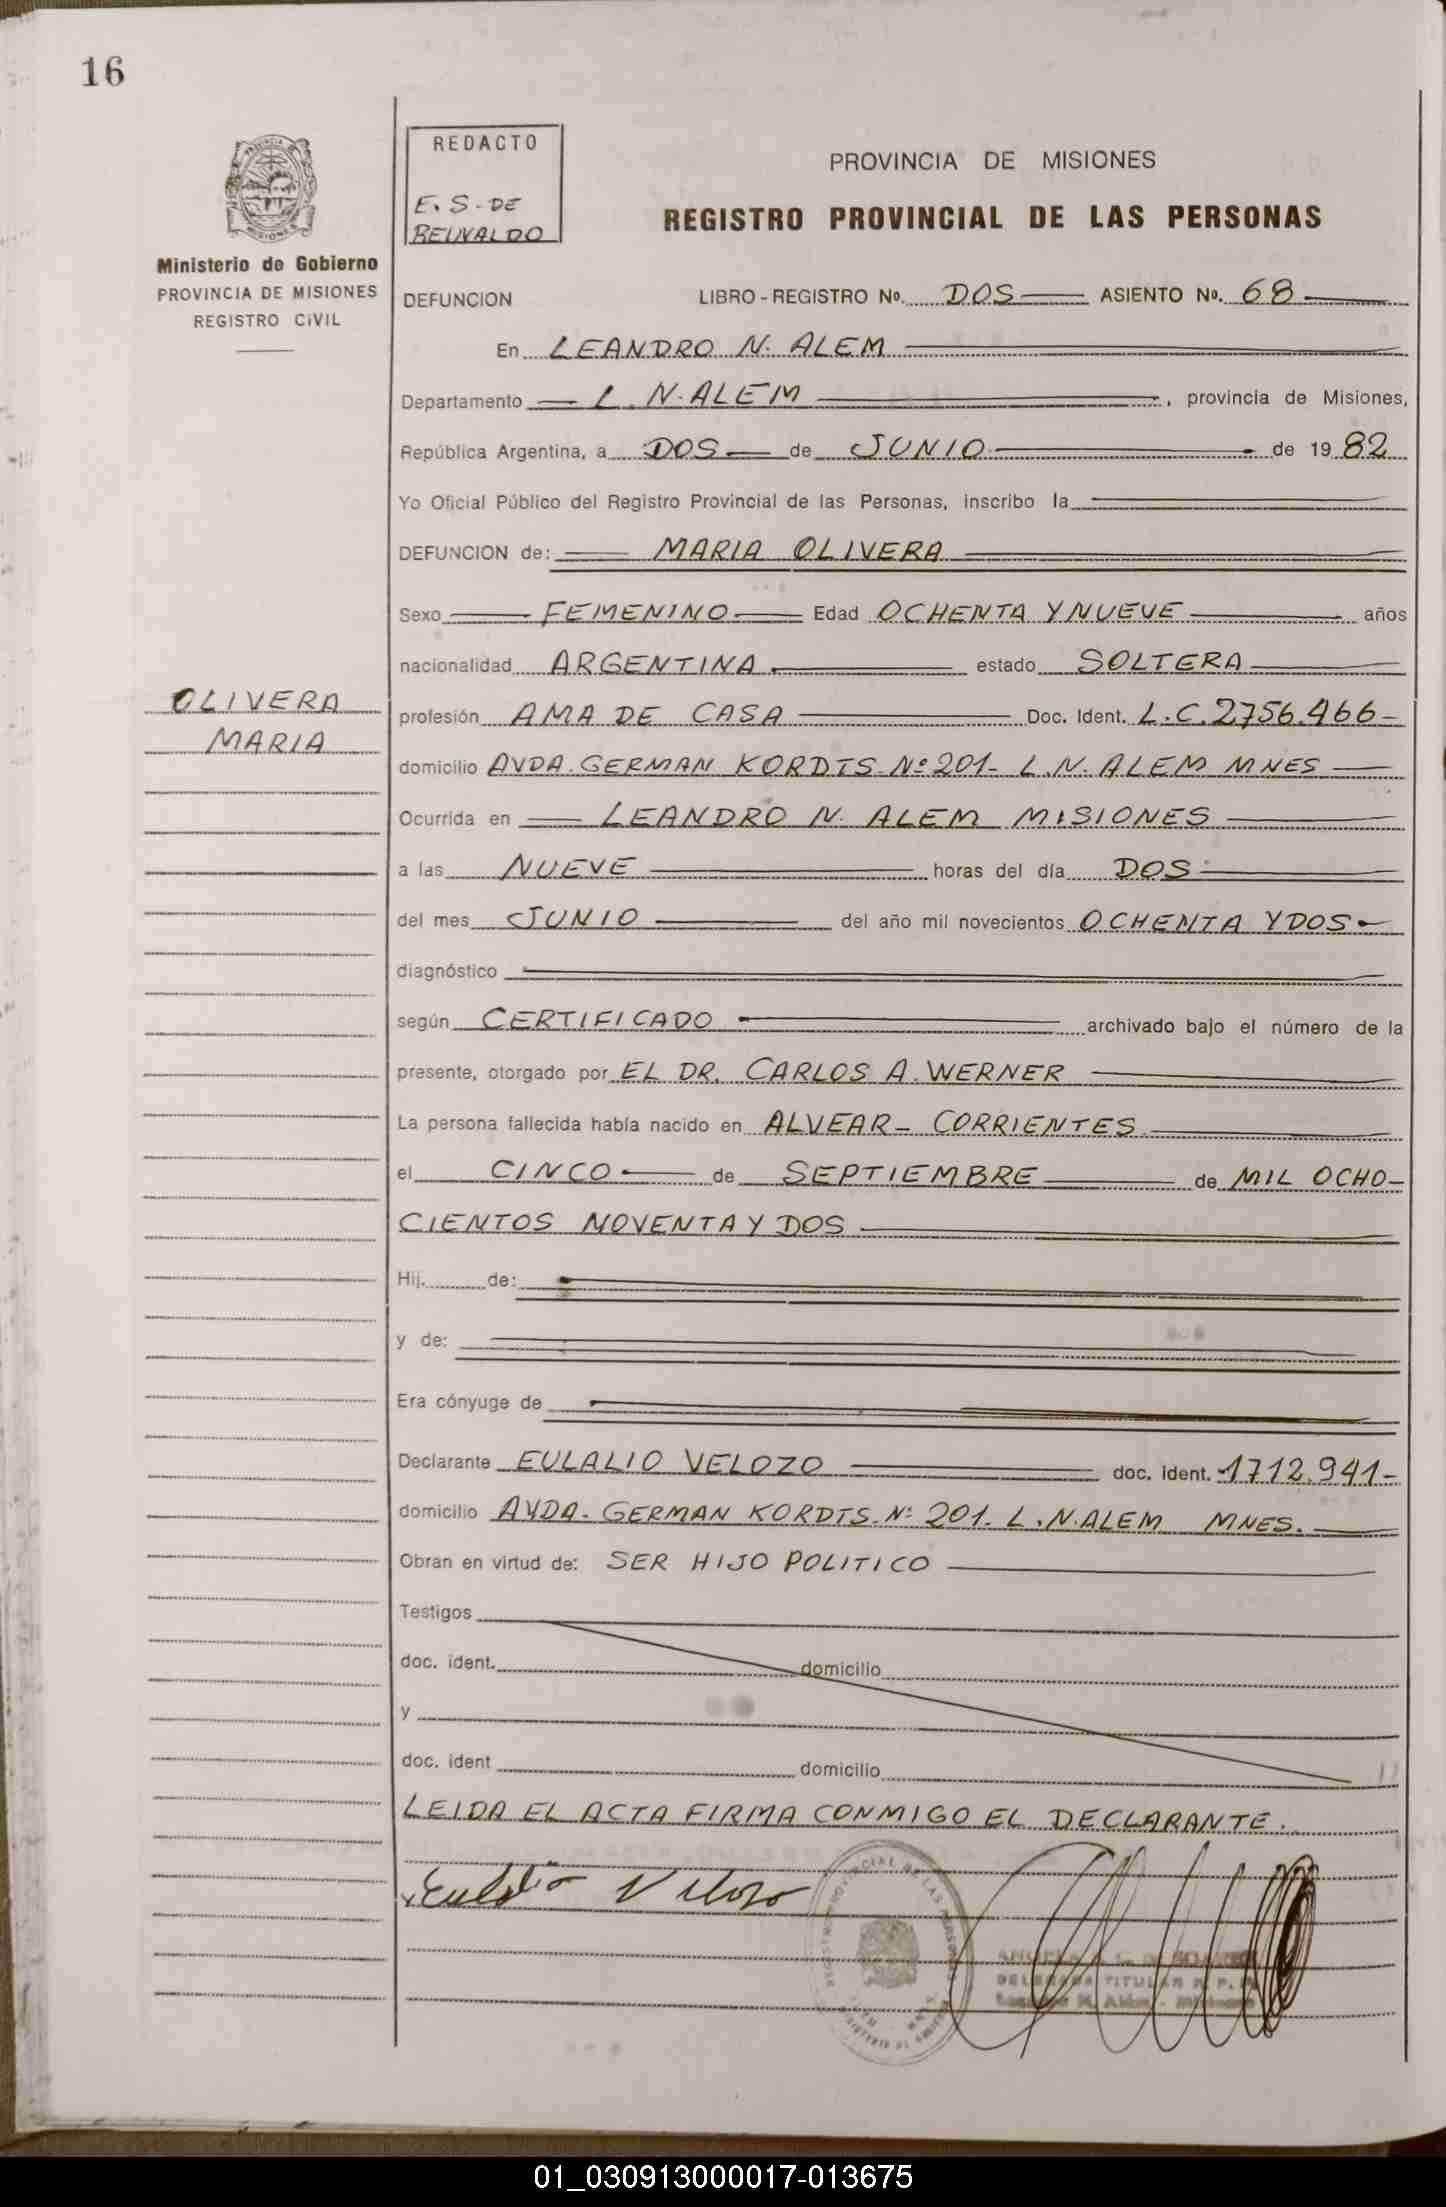 16
REDACTO
E. S. DE
REINALDO
Ministerio de Gobierno
PROVINCIA DE MISIONES
REGISTRO CIVIL
PROVINCIA DE MISIONES
REGISTRO PROVINCIAL DE LAS PERSONAS
DEFUNCION LIBRO - REGISTRO No. DOS ASIENTO No. 68
En LEANDRO N. ALEM
Departamento L. N. ALEM, provincia de Misiones,
República Argentina, a DOS de JUNIO de 1982
Yo Oficial Público del Registro Provincial de las Personas, inscribo la
DEFUNCION de: MARIA OLIVERA
Sexo FEMENINO Edad OCHENTA Y NUEVE años
nacionalidad ARGENTINA estado SOLTERA
OLIVERA
MARIA
profesión AMA DE CASA Doc. Ident. L.C. 2756.466-
domicilio AVDA. GERMAN KORDTS Nº 201- L.N. ALEM MNES
Ocurrida en LEANDRO N. ALEM MISIONES
a las NUEVE horas del día DOS
del mes JUNIO del año mil novecientos OCHENTA Y DOS
diagnóstico
según CERTIFICADO archivado bajo el número de la
presente, otorgado por EL DR. CARLOS A. WERNER
La persona fallecida había nacido en ALVEAR - CORRIENTES
el CINCO de SEPTIEMBRE de MIL OCHO-
CIENTOS NOVENTA Y DOS
Hij. de:
y de:
Era cónyuge de
Declarante EULALIO VELOZO doc. ident. 1712.941-
domicilio AVDA. GERMAN KORDTS Nº 201. L.N. ALEM MNES.
Obran en virtud de: SER HIJO POLITICO
Testigos
doc. ident. domicilio
y
doc. ident domicilio
LEIDA EL ACTA FIRMA CONMIGO EL DECLARANTE.
Eulalio Velozo
DELEGADA TITULAR R. P.
Leandro N. Alem - Misiones
01_030913000017-013675